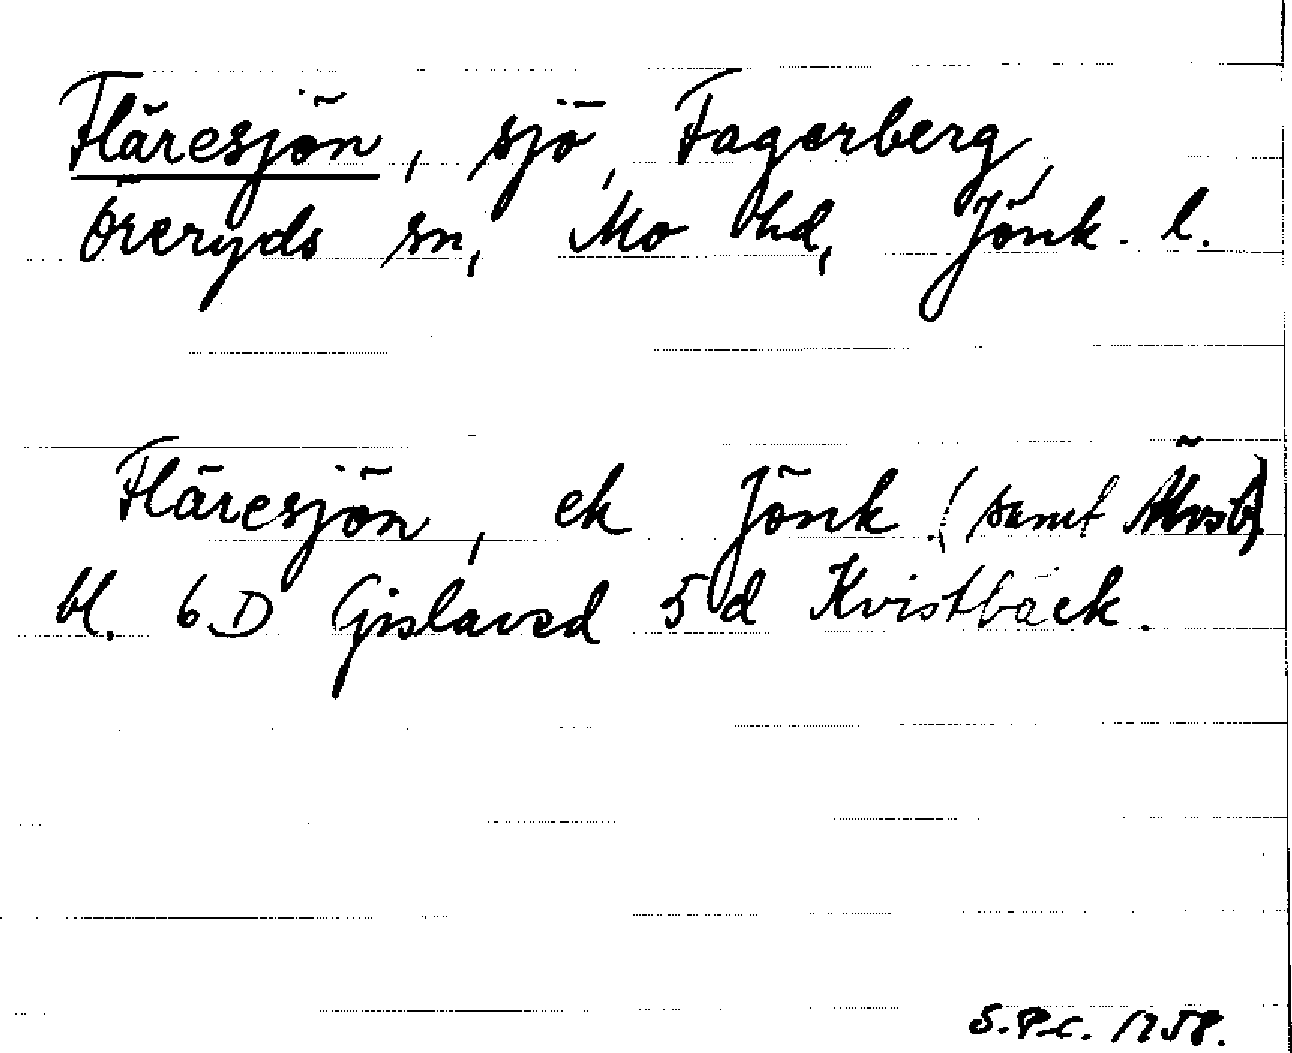 Fläresjön, sjö, Fagerberg,
Öreryds sn, Mo hd, Jönk. l.
Fläresjön, ek Jönk. (samt Älvsb)
bl. 6 D Gislaved 5 d Kvistbäck.
S.P.C. 1958.